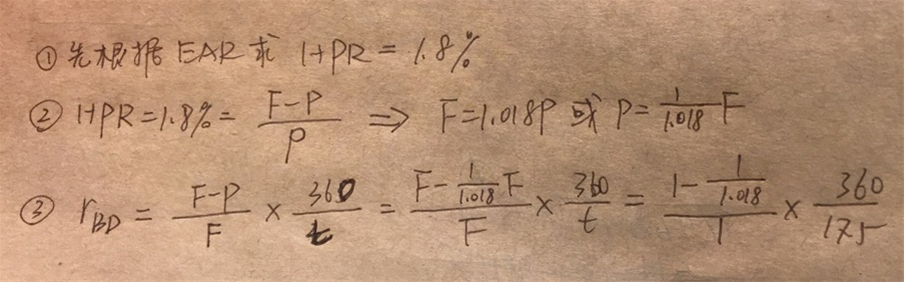 ① 先根据 EAR 求 HPR = 1.8%
② HPR = 1.8% = \frac{F-P}{P} ⇒ F = 1.018P 或 P = \frac{1}{1.018} F
③ r_{BD} = \frac{F-P}{F} × \frac{360}{t} = \frac{F - \frac{1}{1.018} F}{F} × \frac{360}{t} = \frac{1 - \frac{1}{1.018}}{1} × \frac{360}{175}